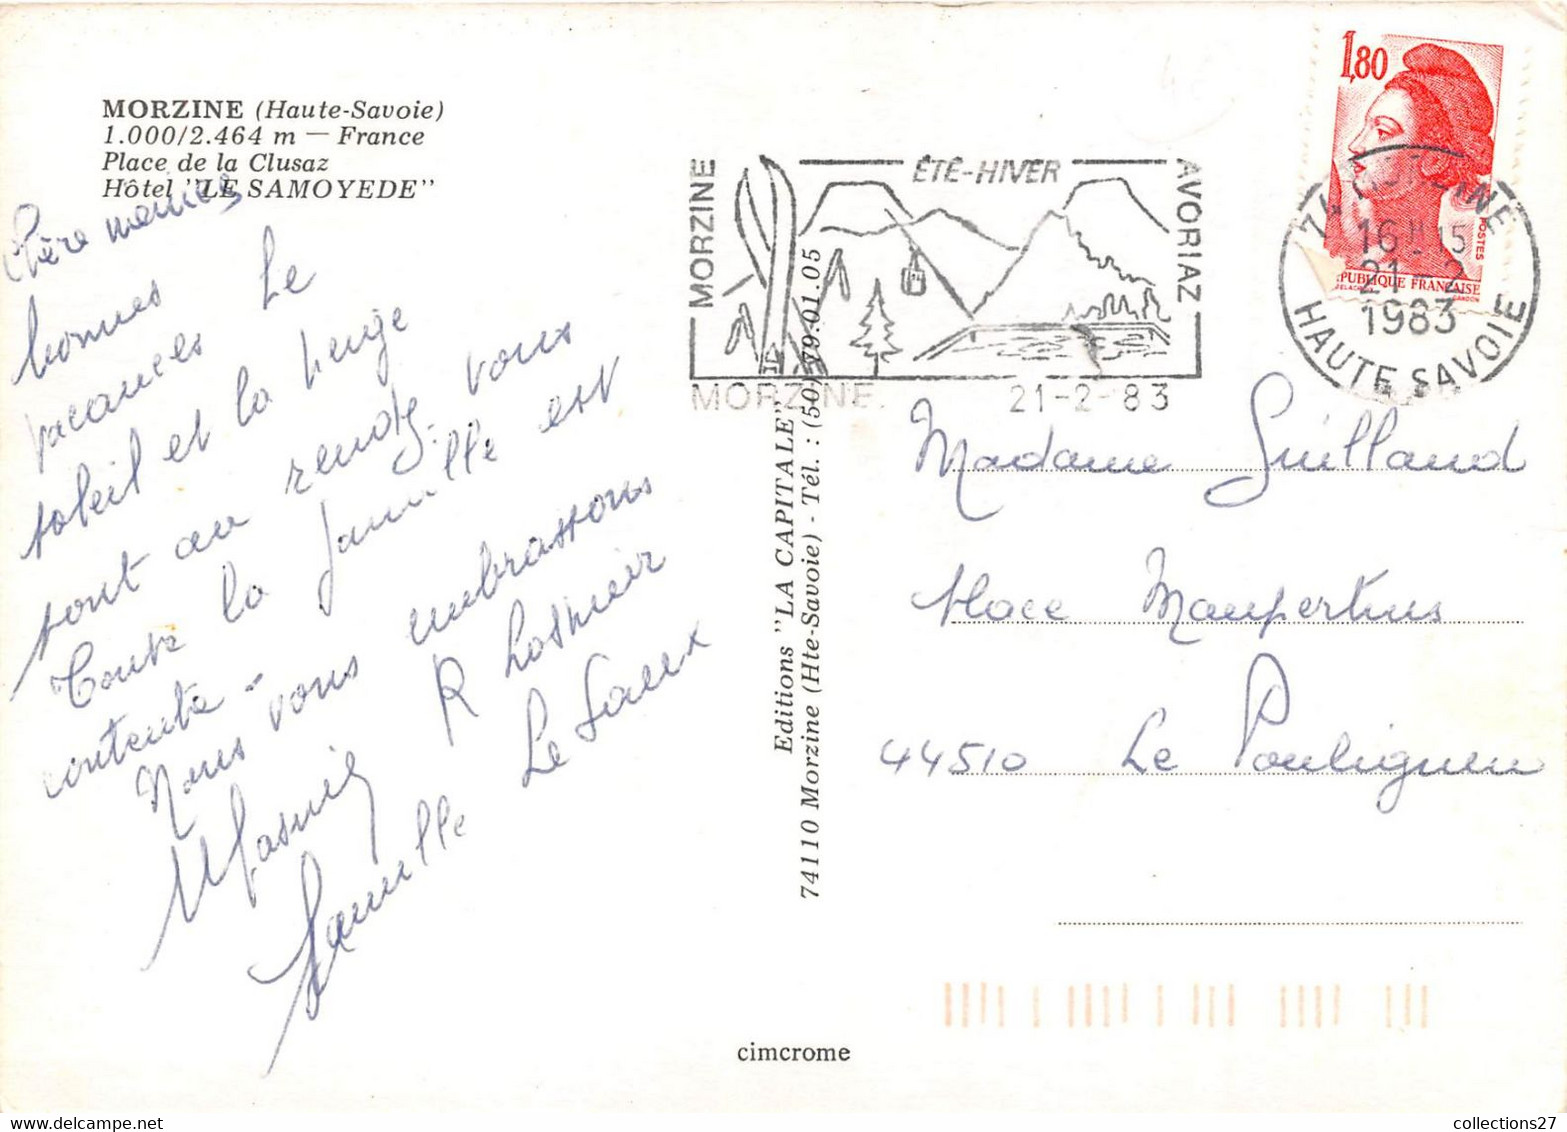 MORZINE (Haute-Savoie)
1.000/2.464 m — France
Place de la Clusaz
Hôtel "LE SAMOYEDE"
Chère mamie
bonnes
vacances Le
soleil et la neige
sont au rendez-vous
Toute la famille est
contente -
Nous vous embrassons
R
Famille Le
Editions "LA CAPITALE"
74110 Morzine (Hte-Savoie) - Tél. : (50) 79.01.05
cimcrome
MORZINE
ÉTÉ-HIVER
AVORIAZ
MORZINE 21-2-83
1,80
POSTES
RÉPUBLIQUE FRANÇAISE
GANDON
74 MORZINE
16H15
21-2
1983
HAUTE SAVOIE
Madame Guilland
Place Maupertuis
44510 Le Pouliguen
collections27